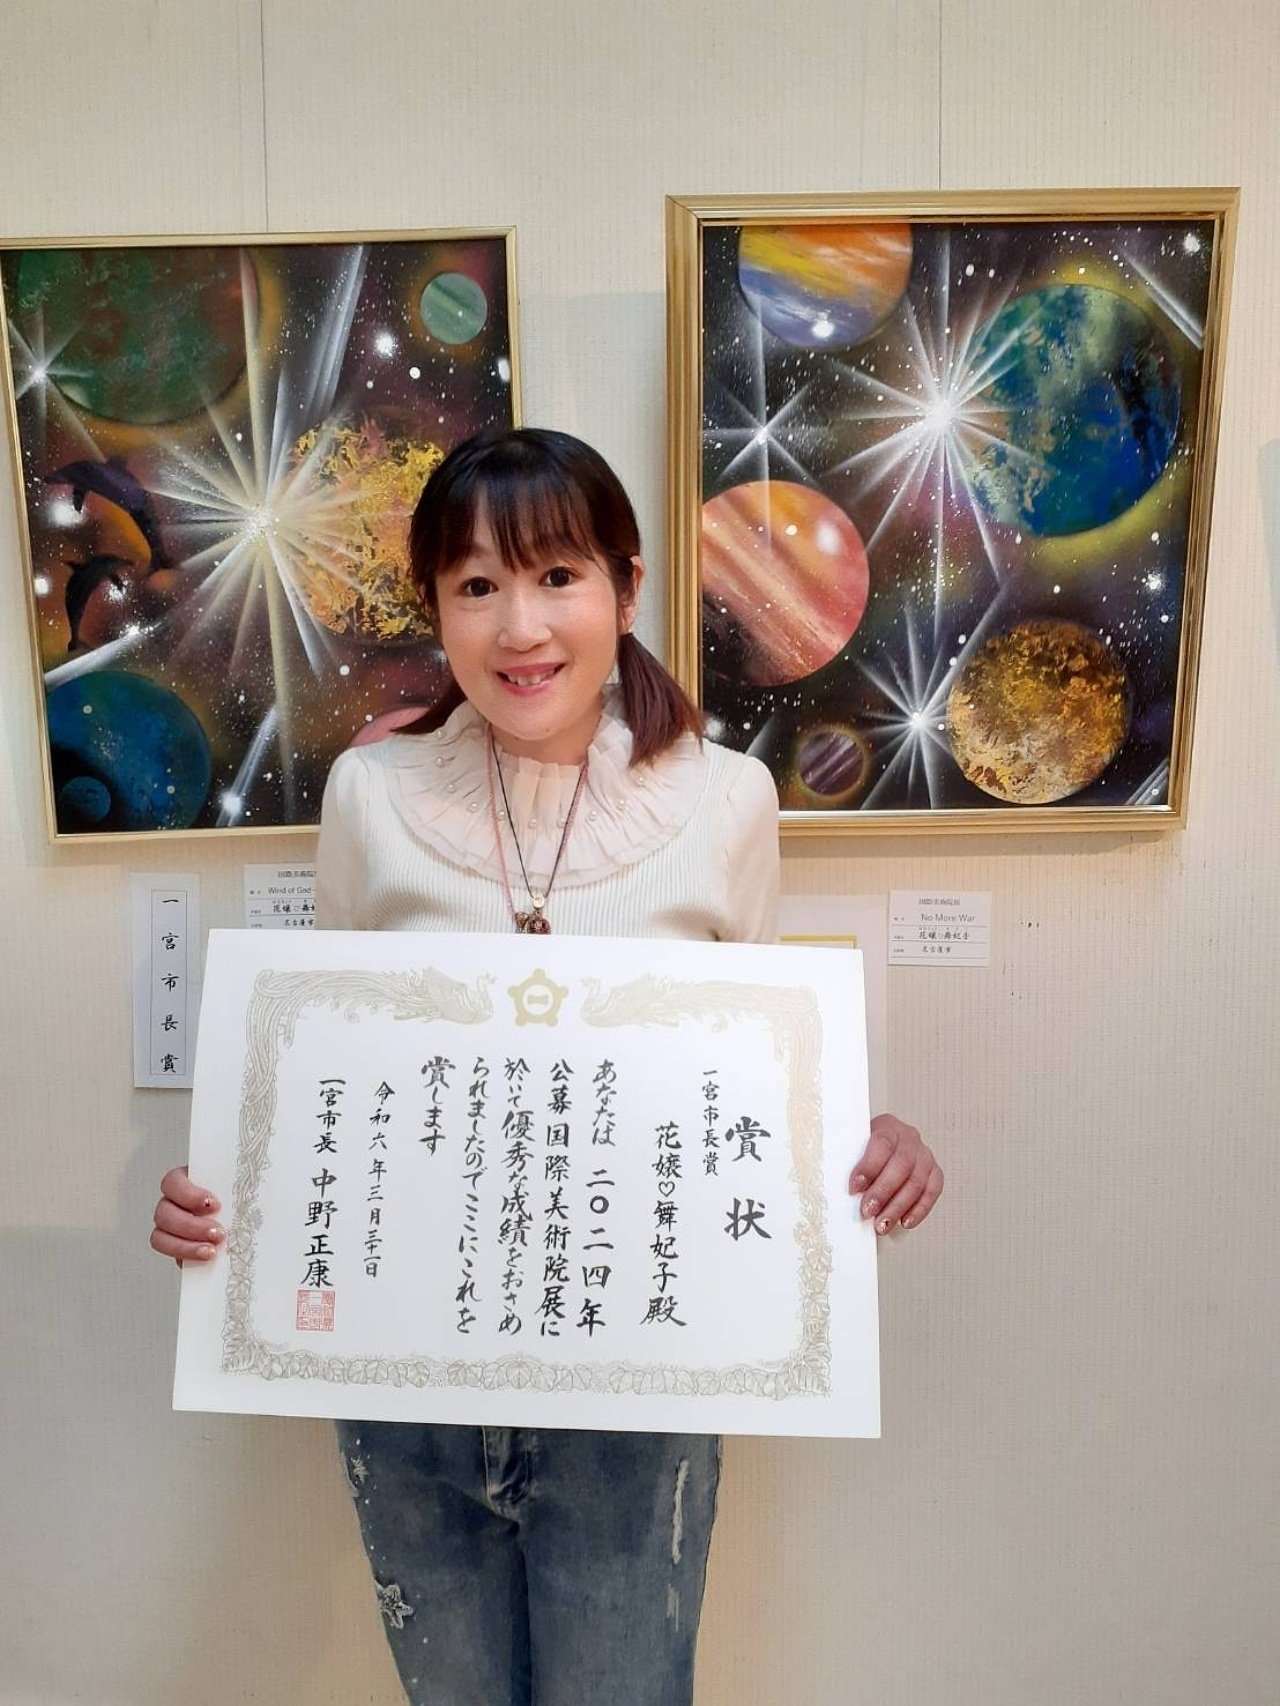 賞状
一宮市長賞
花嬢♡舞妃子殿
あなたは二〇二四年
公募国際美術院展に
於いて優秀な成績をおさめ
られましたのでここにこれを
賞します
令和六年三月三十一日
一宮市長 中野正康
一宮市長賞
国際美術院
Wind of God
花嬢♡舞妃
名古屋市
国際美術院展
No More War
花嬢♡舞妃子
名古屋市